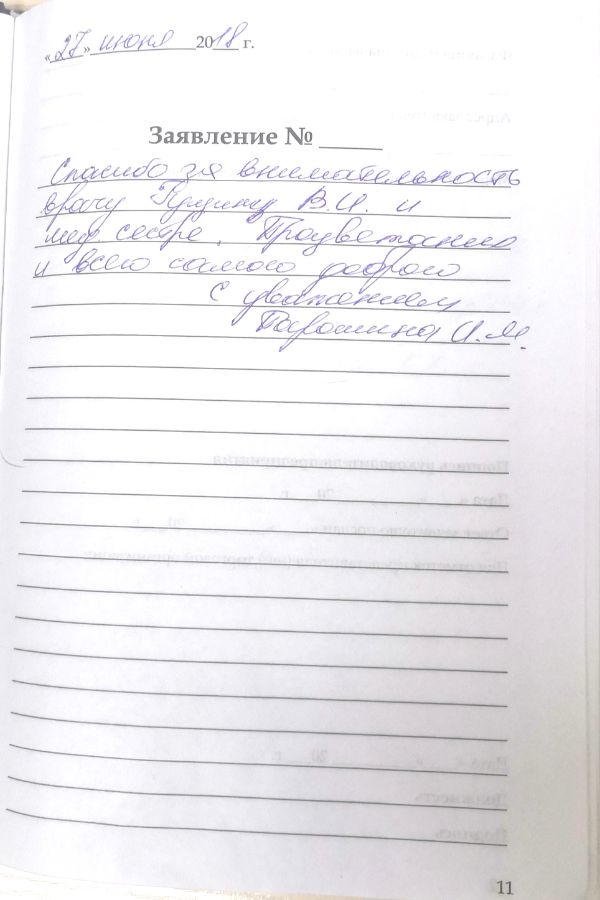 «27» июня 2018 г.
Заявление № _____
Спасибо за внимательность
врачу В.И. и
мед. сестре. Процветания
и всего самого доброго
С уважением
И.М.
11